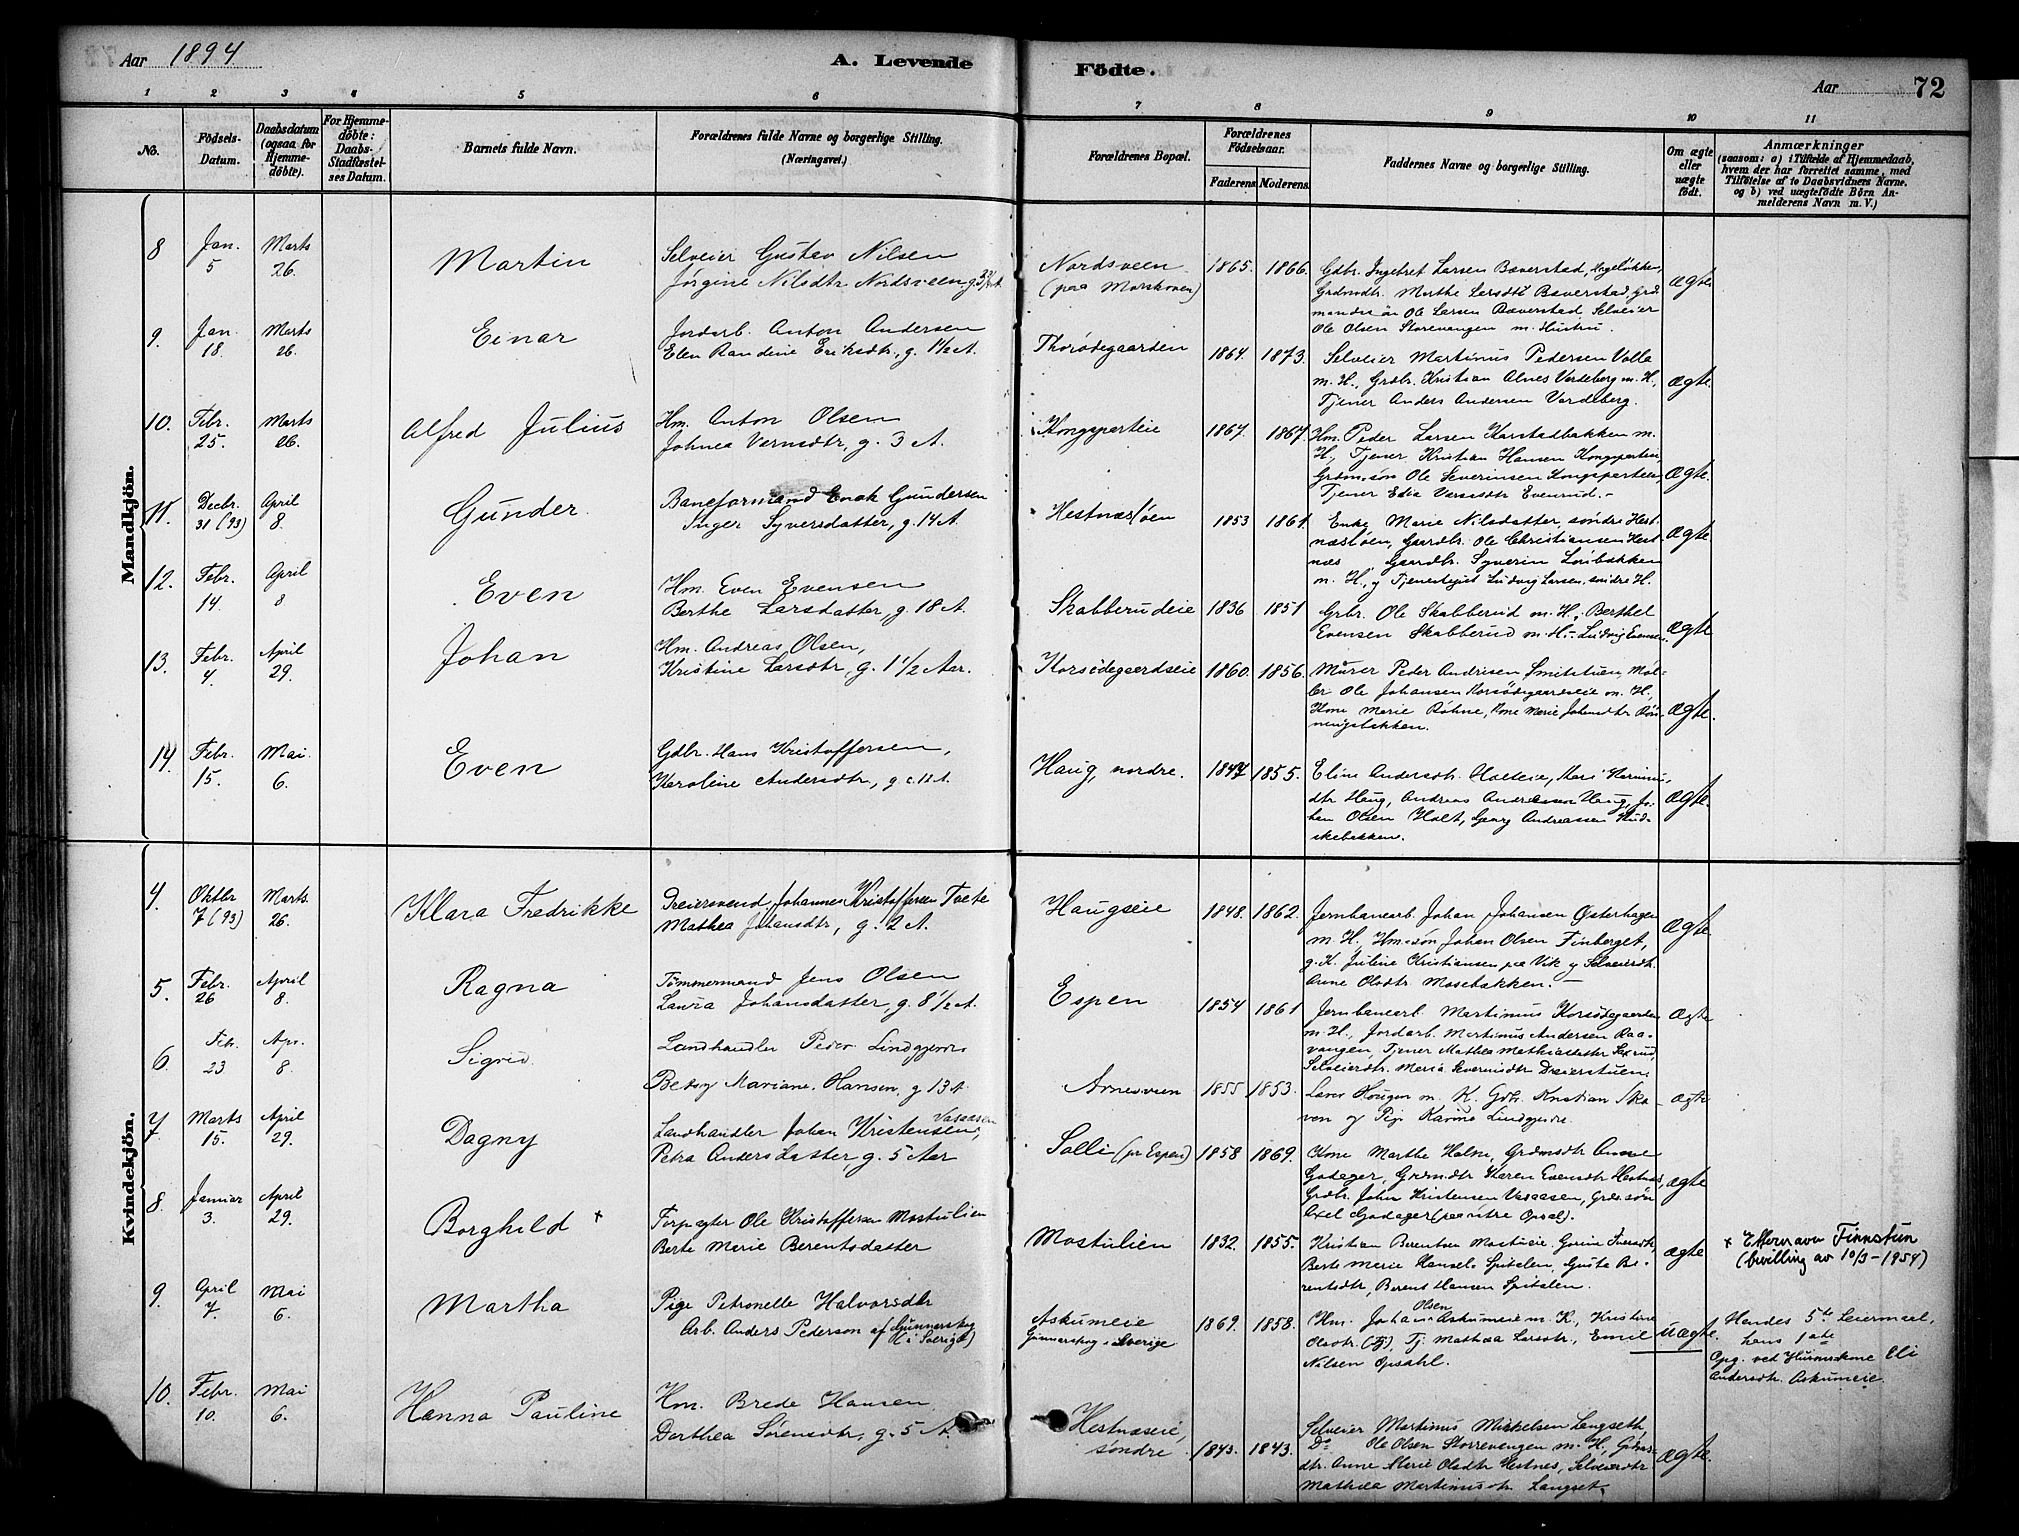 Aar 1894
A. Levende
Födte.
Aar 72
1 2 3 4 5 6 7 8 9 10 11
No.
Födsels-Datum.
Daabsdatum (ogsaa for Hjemmedöbte).
For Hjemmedöbte: Daabs-Stadfæstelses Datum.
Barnets fulde Navn.
Forældrenes fulde Navne og borgerlige Stilling. (Næringsvei.)
Forældrenes Bopæl.
Forældrenes Födselsaar.
Faderens Moderens
Faddernes Navne og borgerlige Stilling.
Om ægte eller uægte födt.
Anmærkninger
(saasom: a) i Tilfælde af Hjemmedaab,
hvem der har forrettet samme, med
Tilföielse af to Daabsvidners Navne.
og b) ved uægtefödte Börn Anmelderens Navn m. V.)
Mandkjön.
8 Jan. 5 Marts 26. Martin
Selveier Gustav Nilsen
Jørgine Nilsdtr Nordsveen
Nordsveen (paa Morskoven) 1865. 1866.
Gdbr. Ingebret Larsen Bæverstad,
Grdmdtr. Marthe Larsdtr Bæverstad, Grd
mandssøn Ole Larsen Bæverstad, Selveier
Ole Olsen Storevangen m. Hustru.
ægte
9. Jan. 18. Marts 26. Einar
Jordarb. Anton Andersen
Elen Randine Eriksdtr, g. 1½ A.
Thorödegaarden 1864. 1873.
Selveier Martinus Pedersen Volla
m. H., Grdbr. Kristian Alnes Vardeberg m. H.,
Tjener Anders Andersen Vardeberg.
ægte
10. Febr. 25. Marts 26. Alfred Julius
Hm. Anton Olsen
Johnea Vernsdtr, g. 3 A.
Kongsparteie 1867. 1867.
Hm. Peder Larsen Karstadbakken m.
H., Tjener Kristian Hansen Kongsparteie,
Grdm.søn Ole Severinsen Kongsparteie,
Tjener Edia Evenrud.
ægte.
11. Decbr. 31 (93) April 8. Gunder.
Baneformand Enok Gundersen
Inger Syversdatter, g. 14 A.
Hestnæsløen 1853 1861.
Enke Marie Nilsdatter, søndre Hest
næsløen, Gaardbr. Ole Christiansen Hest
næs, Gaardbr. Syverin Lønbakken
m. H., og Tjenestepige Ludvig Larsen, søndre H.
ægte
12. Febr. 14. April 8 Even
Hm. Even Evensen
Berthe Larsdatter, g. 18 A.
Skabberudeie 1836 1851
Grbr. Ole Skabberud m. H., Berthel
Evensen Skabberud m. H. Ludvig Evensen.
ægte
13. Febr. 4. April 29. Johan
Hm. Andreas Olsen,
Kristine Larsdtr, g. 1 1/2 Aar.
Korsödegaardseie 1860. 1856.
Murer Peder Andersen Smitstuen, Maler
Ole Johansen Korsödegaardseie m. H.,
Kone Marie Bøhne, Kone Marie Johnsdtr Rönningsbakken.
ægte.
14. Febr. 15. Mai 6. Even
Gdbr. Hans Kristoffersen,
Karoline Andersdtr, g. c. 11 A.
Haug, nordre. 1847 1855.
Eline Andersdtr. Holteie, Kari
dtr Haug, Andreas Andreassen Haug, Johan
Olsen Holt, Georg Andreassen
ægte.
Kvindekjön.
4. Oktbr 7 (93) Marts. 26. Klara Fredrikke
Dreiersvend Johannes Kristoffersen Tvete
Mathea Johansdtr, g. 2 A.
Haugseie 1848. 1862.
Jernbanearb. Johan Johansen Østerhagen
m. H., Hm.søn Johan Olsen Finberget,
g. K. Juline Kristiansen paa Vik og Selveierdtr.
Anne Olsdtr. Mosebakken.
ægte
5. Febr. 26 April 8. Ragna
Tömmermand Jens Olsen
Laura Johansdatter, g. 8 1/2 A.
Espen 1854 1861
Jernbanearb. Martinus Korsödegaarden
m. H., Jordarb. Martinus Andersen Raavangen,
Tjener Mathea Mathiasdatter
Selveierdtr. Maria Severinsdtr Dreierstuen.
ægte
6. Feb. 23 Apr. 8. Sigrid.
Landhandler Peder Lindgjerdes
Betsy Mariane Hansen, g 13 A
Arnesveen 1855 1853.
Lars Haugen m. K. Gdbr. Kristian Skaven
og Pige Karine Lindgjerde.
ægte
7 Marts 15. April 29. Dagny
Landhandler Johan Kristensen Vasaasen,
Petra Andersdatter, g. 5 Aar
Solli (pr Espen) 1858 1869.
Kone Marthe Holm, Grdmdtr Anne
Godager, Grdmdtr Karen Evensdtr Hestnæs,
Grdbr. John Kristensen Vasaasen, Grdm.søn
Axel Godager (paa ntre Opsal).
ægte
8. Januar 3. April 29. Borghild ×
Forpagter Ole Kristoffersen Mostulien
Berte Marie Berentsdatter
Mostulien 1832. 1855.
Kristian Berentsen Mostueie, Gorine Iversdtr,
Berte Marie Hansels Spitalen, Gusta Berentsdtr,
Berent Hansen Spitalen.
ægte
× Efternavn Finnstun
(bevilling av 10/3-1954)
9. April 7. Mai 6. Martha
Pige Petronelle Halvorsdtr
Arb. Anders Pederson af Gunnerskog (i Sverige)
Askumeie
Gunnarskog i Sverige 1869. 1858.
Hm. Johan Olsen Askumeie m. K., Kristine
Olsdtr. , Tj. Mathea Larsdtr, Emil
Nilsen Opsahl.
uægte.
Hendes 5te Leiermaal,
hans 1ste
Opg. ved Husmkone Eli
Andersdtr. Askumeie.
10. Febr. 10. Mai 6. Hanna Pauline
Hm. Brede Hansen,
Dorthea Sørensdtr, g. 5 A.
Hestnæseie, søndre. 1843. 1843.
Selveier Martinus Mikkelsen Langseth,
Do Ole Olsen Storrevangen m. H., Grdmdtr.
Anne Marie Olsdtr Hestnes, Selveierdtr
Mathea Martinusdtr Langset.
ægte.